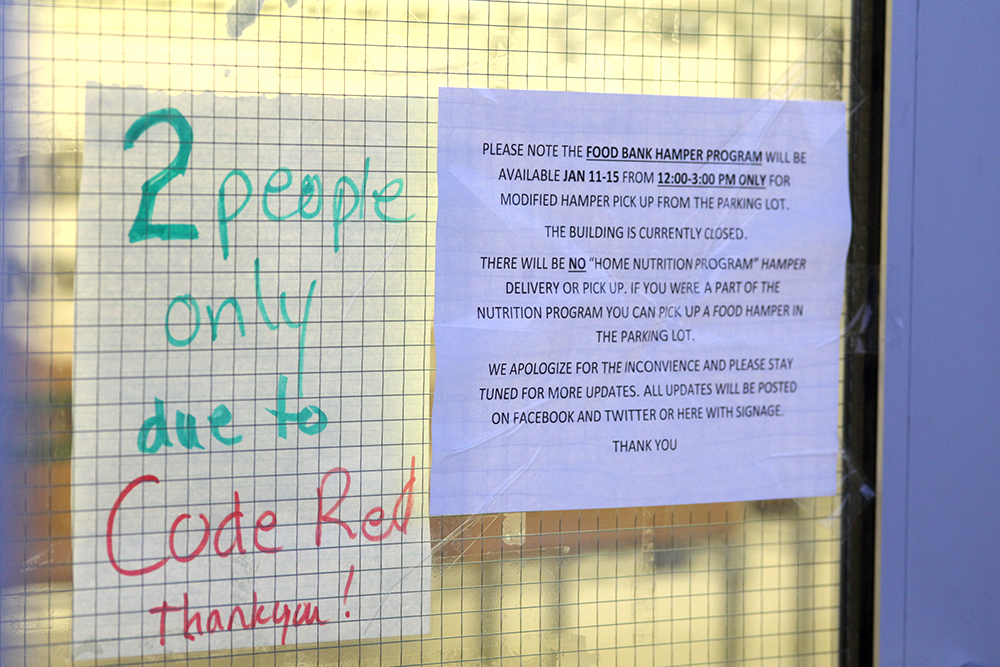 2 people
only
due to
Code Red
Thankyou!
PLEASE NOTE THE FOOD BANK HAMPER PROGRAM WILL BE
AVAILABLE JAN 11-15 FROM 12:00-3:00 PM ONLY FOR
MODIFIED HAMPER PICK UP FROM THE PARKING LOT.
THE BUILDING IS CURRENTLY CLOSED.
THERE WILL BE NO "HOME NUTRITION PROGRAM" HAMPER
DELIVERY OR PICK UP. IF YOU WERE A PART OF THE
NUTRITION PROGRAM YOU CAN PICK UP A FOOD HAMPER IN
THE PARKING LOT.
WE APOLOGIZE FOR THE INCONVIENCE AND PLEASE STAY
TUNED FOR MORE UPDATES. ALL UPDATES WILL BE POSTED
ON FACEBOOK AND TWITTER OR HERE WITH SIGNAGE.
THANK YOU